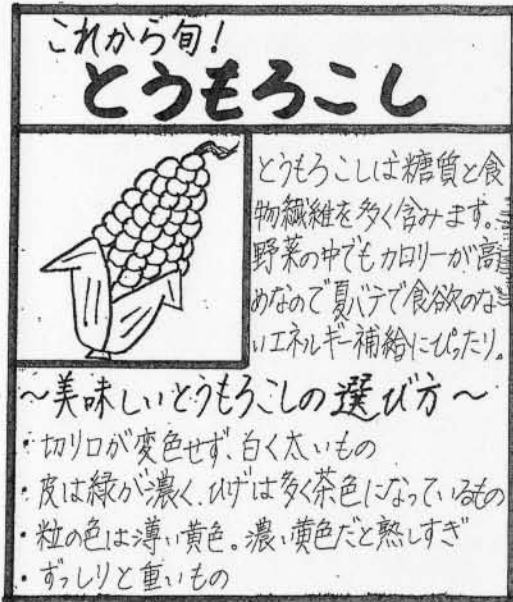 これから旬！
とうもろこし
とうもろこしは糖質と食
物繊維を多く含みます。
野菜の中でもカロリーが高
めなので夏バテで食欲のな
いエネルギー補給にぴったり。
～美味しいとうもろこしの選び方～
・切り口が変色せず、白く太いもの
・皮は緑が濃く、ひげは多く茶色になっているもの
・粒の色は薄い黄色。濃い黄色だと熟しすぎ
・ずっしりと重いもの